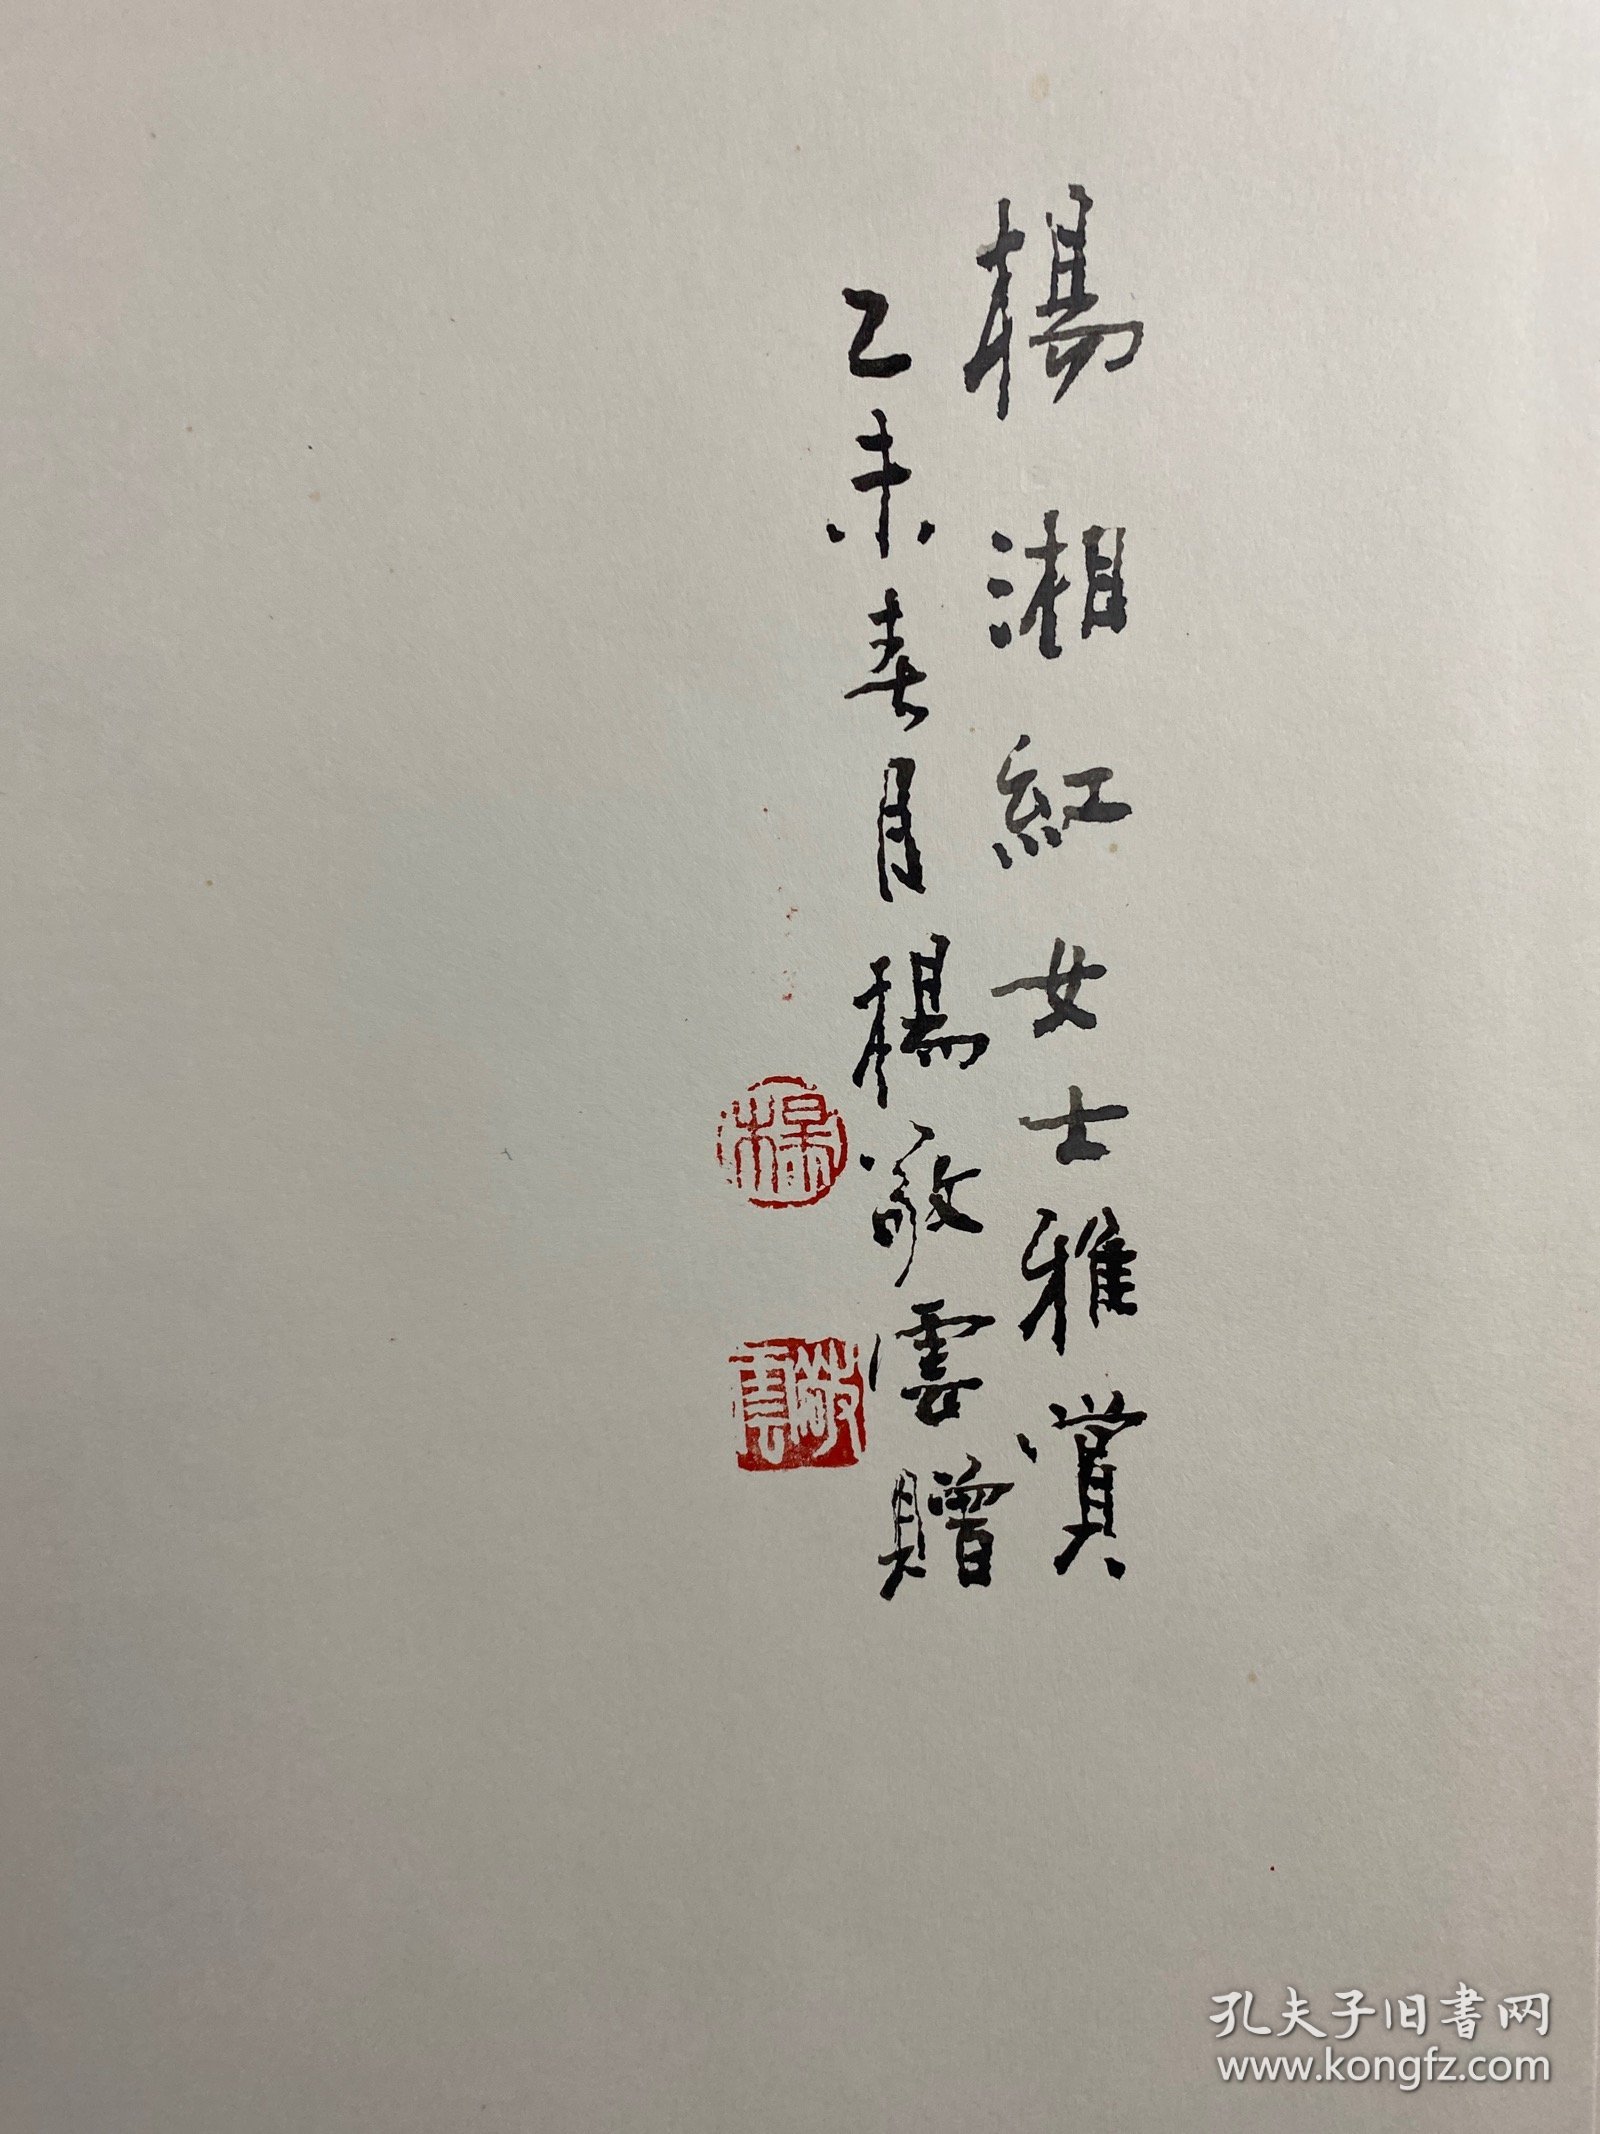 楊湘紅女士雅賞
乙未春月楊敬雲贈
楊
敬雲
孔夫子旧书网
www.kongfz.com